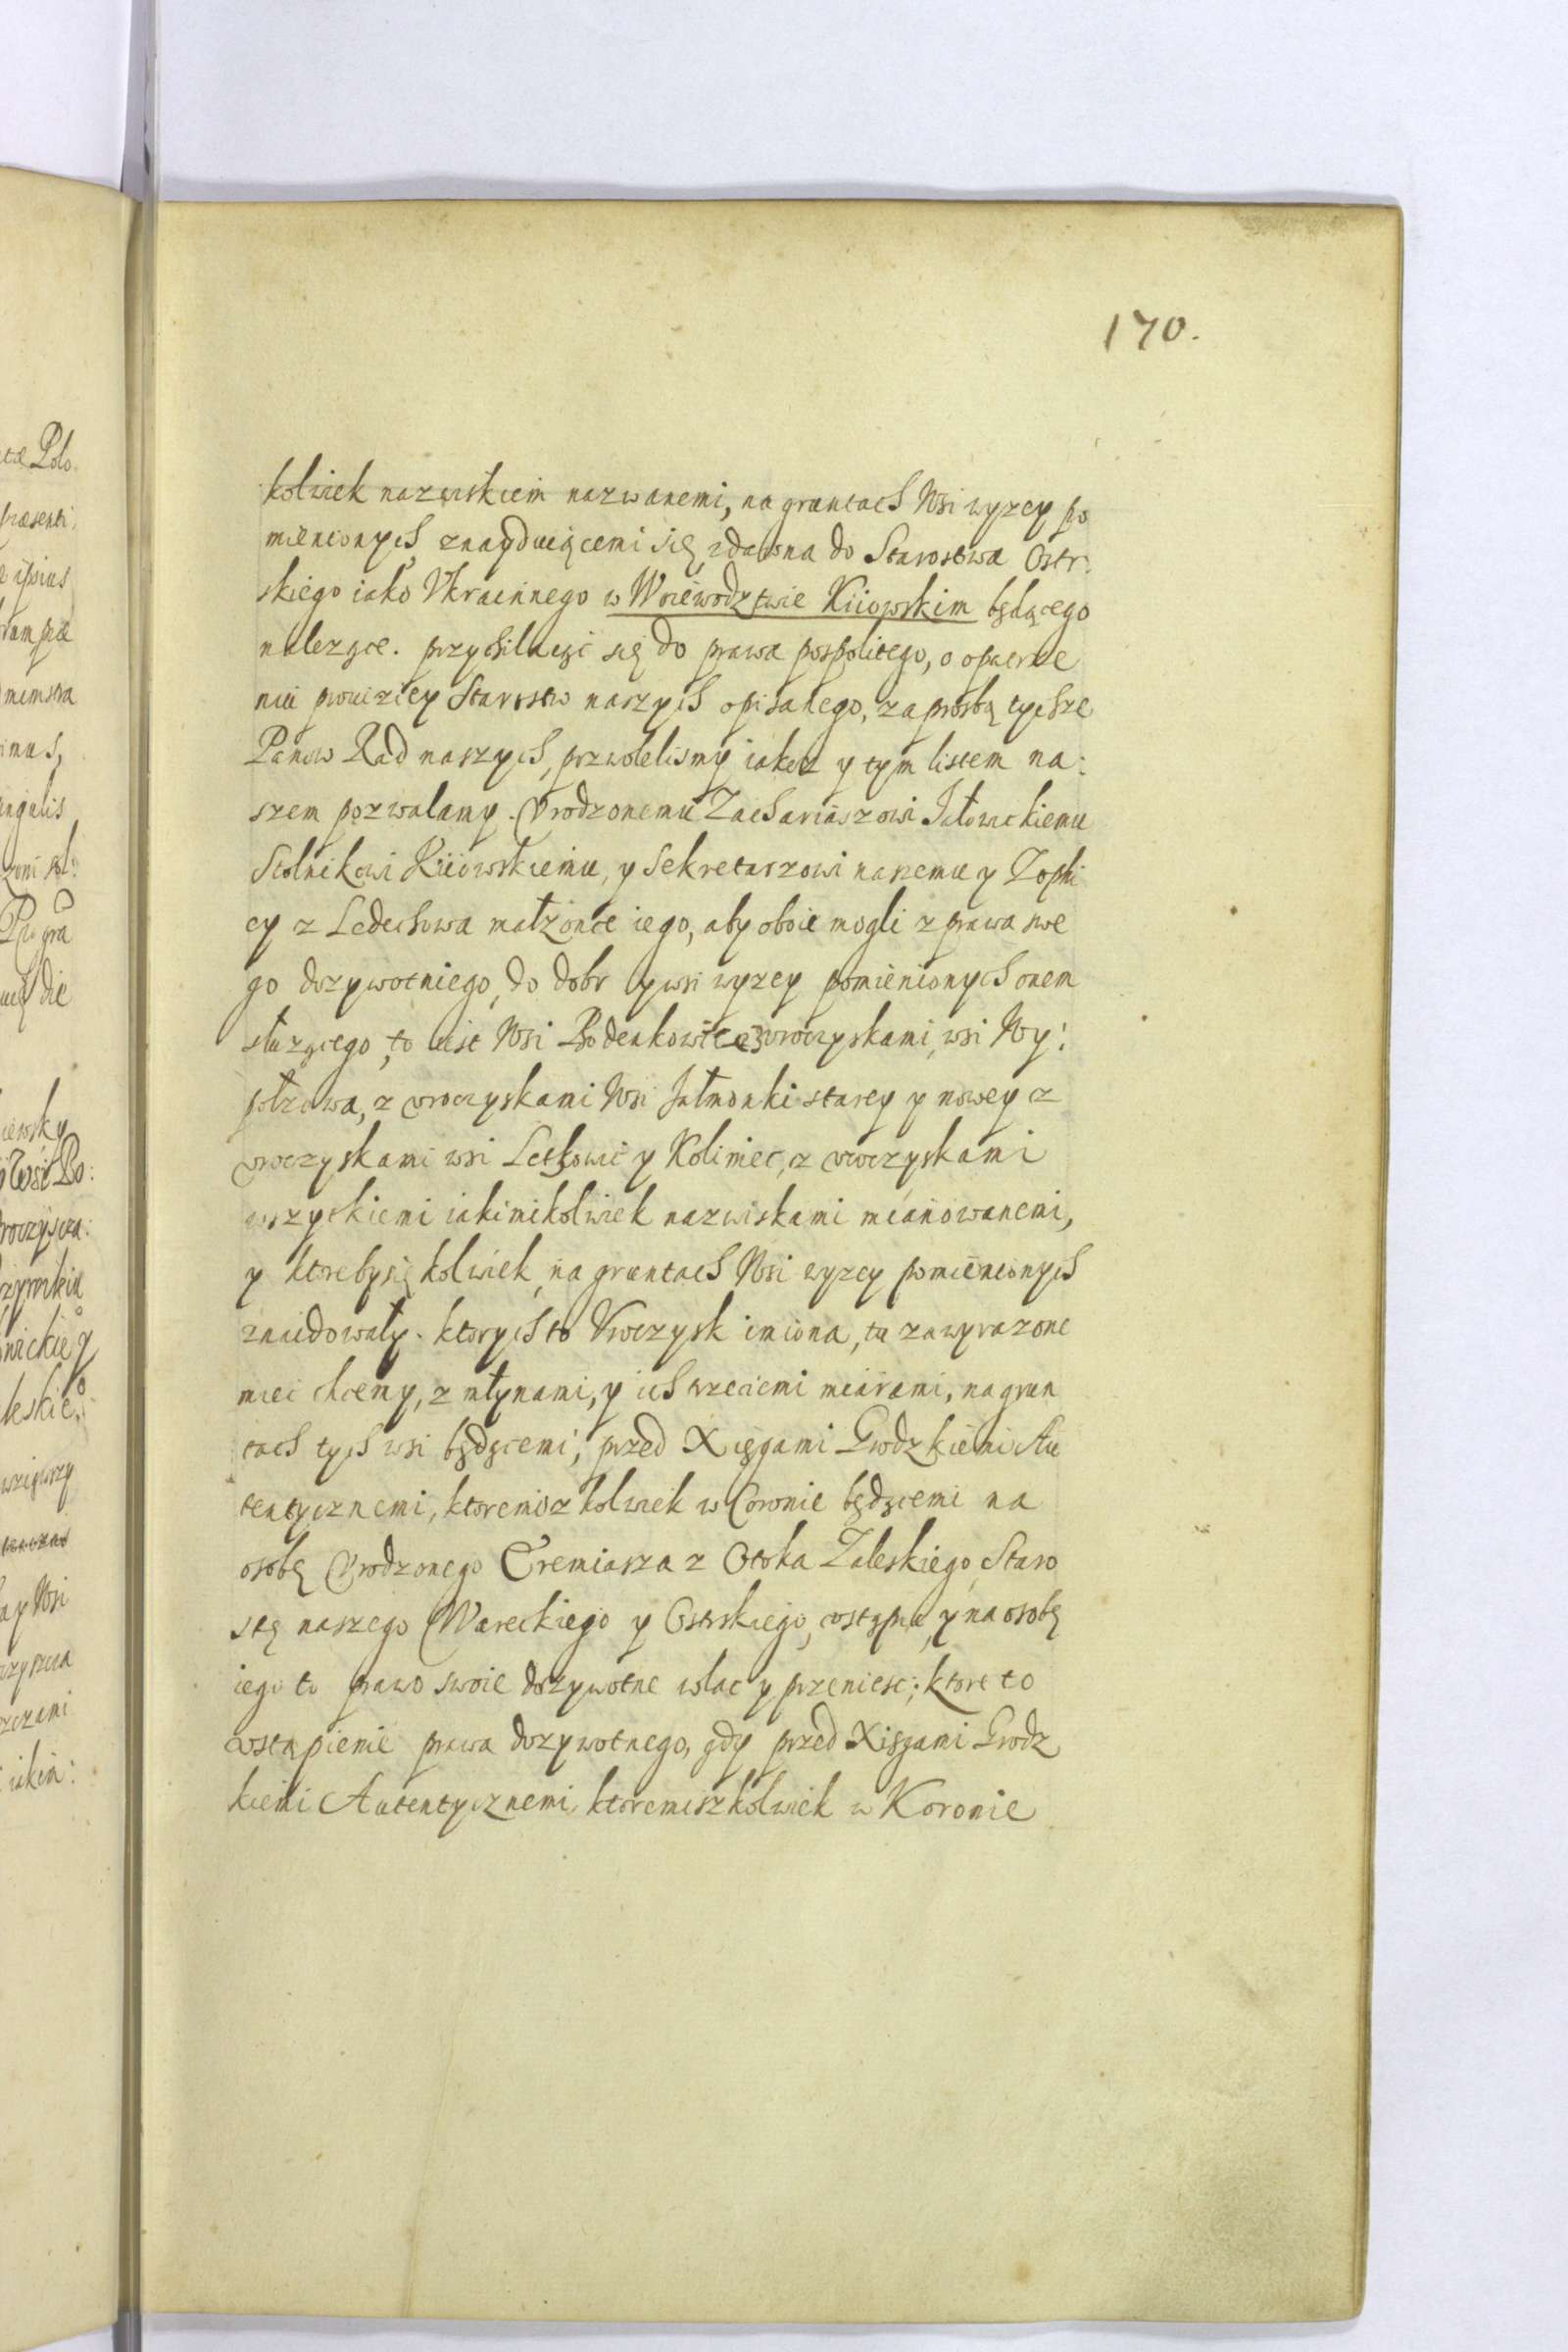 170.
kolwiek nazwiskiem nazwanemi, na gruntach Wsi wyzey po
mienionych, znayduiącemi się zdawna do Starostwa Ostr:
skiego iako Vkrainnego w Woiewodztwie Kiiowskim będącego
nalezące. przychilaiąc się do prawa pospolitego, o opatrze
niu prowiziey Starostw naszych opisanego, za prosbą tychze
Panow Rad naszych, przwolelismy iakoz y tym listem na:
szem pozwalamy. Vrodzonemu Zachariaszowi Jałowickiemu
Stolnikowi Kiiowskiemu, y Sekretarzowi naszemu y Zophi
ey z Ledechowa małzonce iego, aby oboie mogli z prawa swe
go dozywotniego, do dobr y wsi wyzey pomienionych onem
słuzącego, to iest Wsi Bodenkowic z vroczyskami, wsi Wy:
połzowa, z vroczyskami Wsi Jałmonki starey y nowey z
vroczyskami wsi Letkowic y Koliniec, z vroczyskami
wszyskiemi iakimikolwiek nazwiskami mianowanemi,
y ktorebysię kolwiek na gruntach Wsi wyzey pomienionych
znaidowały. ktorych to Vroczysk imiona, tu zawyrazone
miec chcemy, z młynami, y ich trzeciemi miarami, na grun
tach tych wsi będącemi, przed Xięgami Grodzkiemi Au
tentycznemi, ktoremisz kolwiek w Coronie będącemi na
osobę Vrodzonego Eremiasza z Otoka Zaleskiego Staro
stę naszego Wareckiego y Ostrskiego, vstąpic, y na osobę
iego to prawo swoie dozywotne wlac y przeniesc; ktore to
vstąpienie prawa dozywotnego, gdy przed Xięgami Grodz
kiemi Autentycznemi ktoremiszkolwiek w Koronie